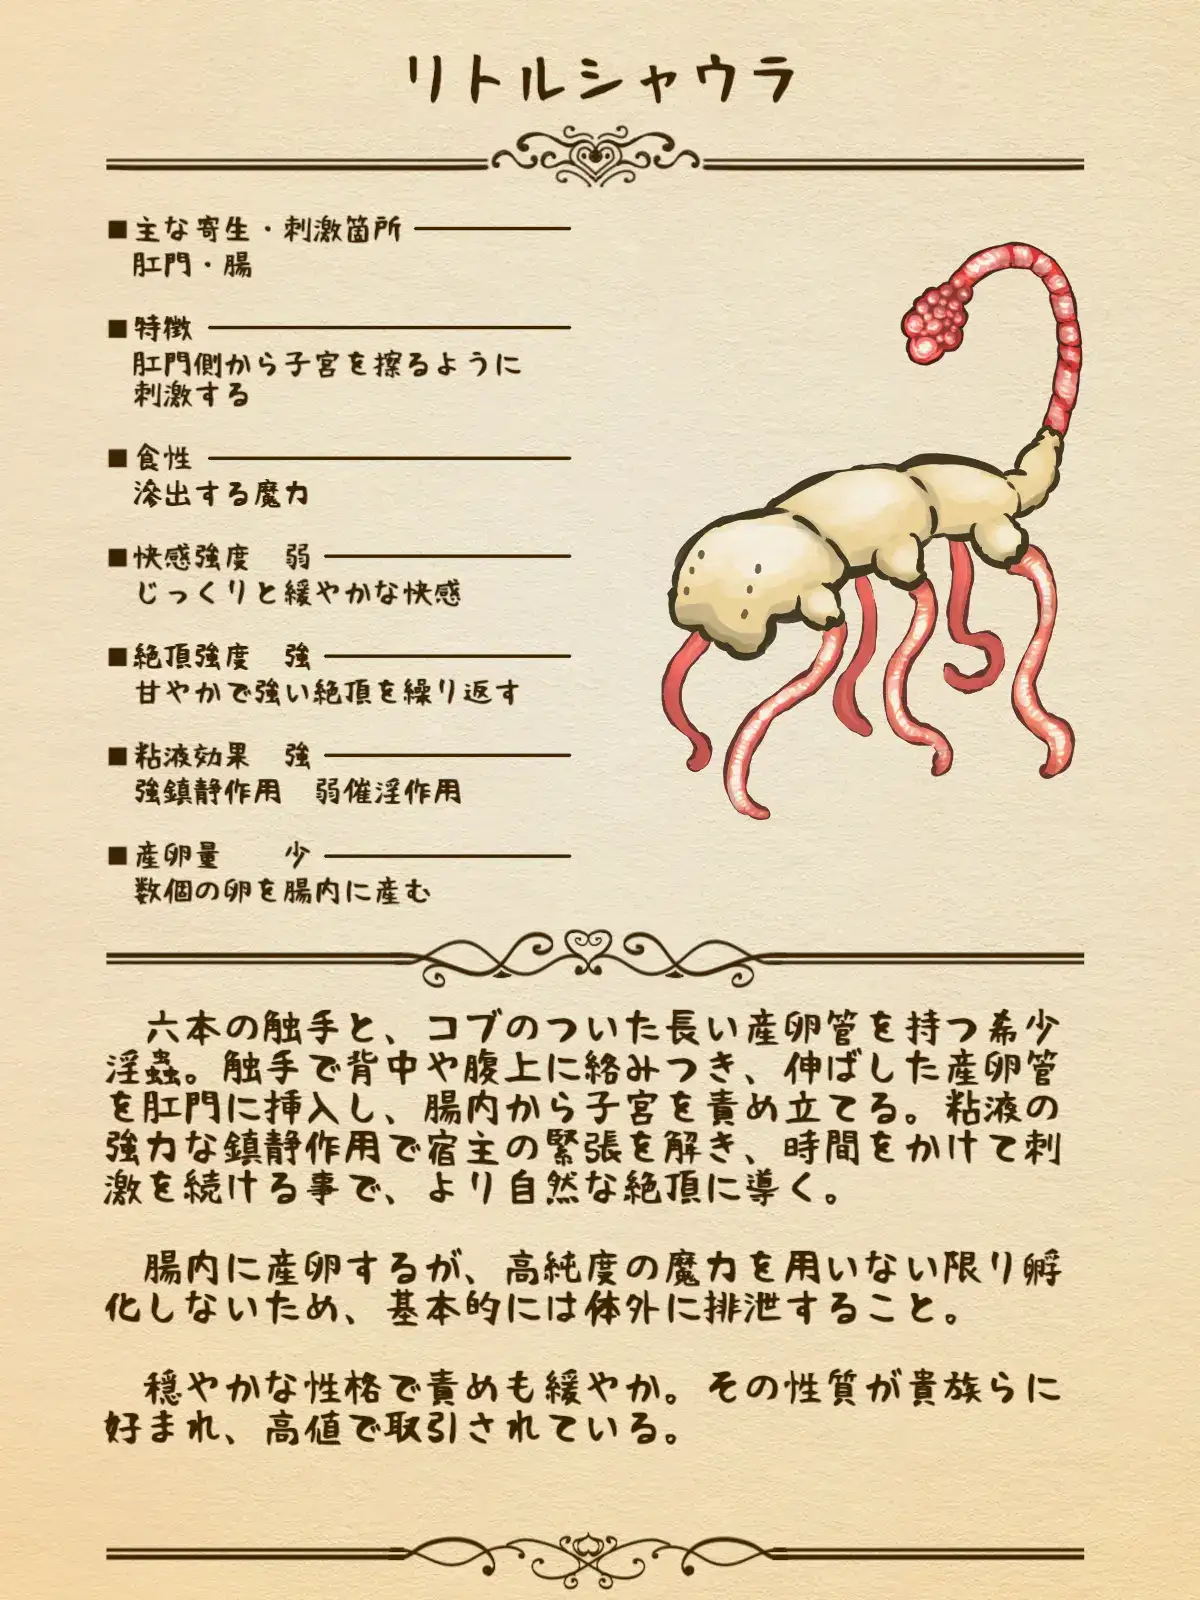 リトルシャウラ
■主な寄生・刺激箇所
肛門・腸
■特徴
肛門側から子宮を擦るように
刺激する
■食性
滲出する魔力
■快感強度　弱
じっくりと緩やかな快感
■絶頂強度　強
甘やかで強い絶頂を繰り返す
■粘液効果　強
強鎮静作用　弱催淫作用
■産卵量　　少
数個の卵を腸内に産む
六本の触手と、コブのついた長い産卵管を持つ希少
淫蟲。触手で背中や腹上に絡みつき、伸ばした産卵管
を肛門に挿入し、腸内から子宮を責め立てる。粘液の
強力な鎮静作用で宿主の緊張を解き、時間をかけて刺
激を続ける事で、より自然な絶頂に導く。
腸内に産卵するが、高純度の魔力を用いない限り孵
化しないため、基本的には体外に排泄すること。
穏やかな性格で責めも緩やか。その性質が貴族らに
好まれ、高値で取引されている。